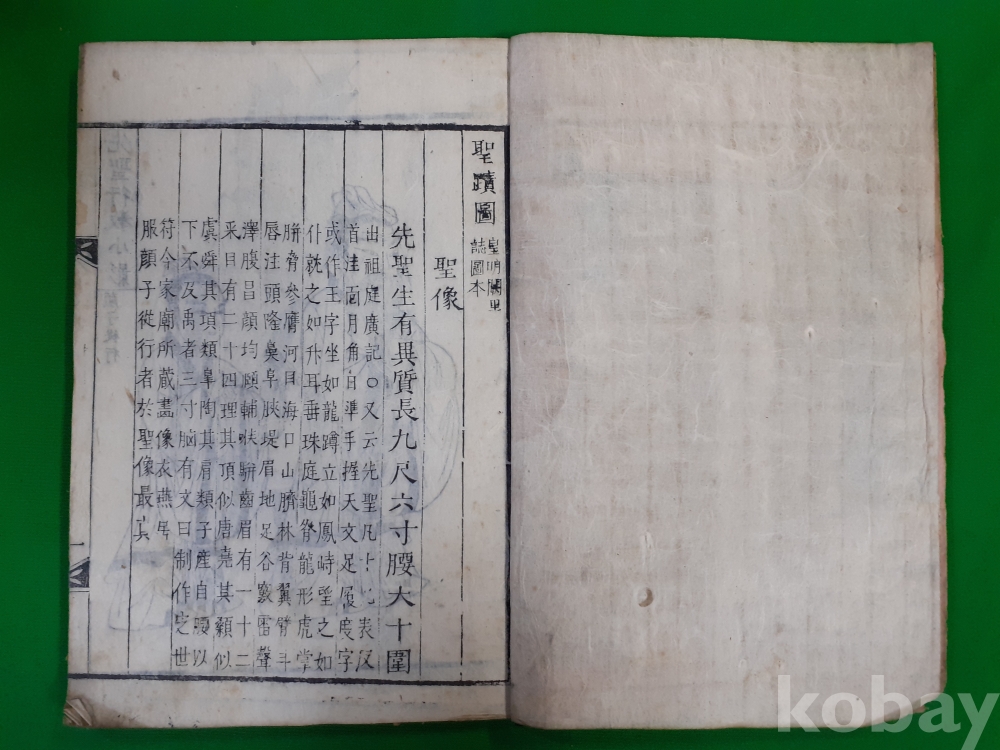 聖蹟圖 皇明闕里誌圖本
聖像
先聖生有異質長九尺六寸腰大十圍
出祖庭廣記○又云先聖凡四十九表反
首洼面月角日準手握天文足履度字
或作王字坐如龍蹲立如鳳時望之如
仆就之如升耳垂珠庭龜脊龍形虎掌
胼脅參膺河目海口山臍林背翼臂斗
唇注頭隆鼻阜脥堤眉地足谷竅雷聲
澤腹昌顏均頤輔喉騈齒眉有一十二
采目有二十四理其頂似唐堯其顙似
虞舜其項類皐陶其肩類子產自腰以
下不及禹者三寸胸有文曰制作定世
符今家廟所蔵畵像衣燕居
服顏子從行者於聖像最真
kobay